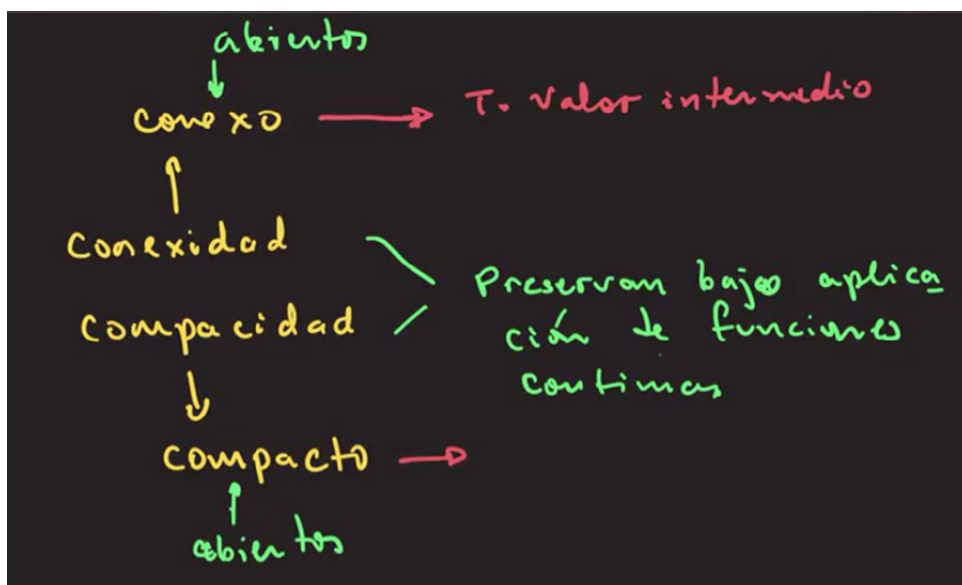 abiertos
conexo
T. Valor intermedio
Conexidad
Compacidad
Preservan bajo aplica
ción de funciones
continuas
compacto
abiertos